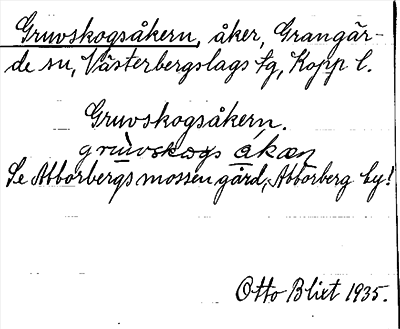 Gruvskogsåkern, åker, Grangär-
de sn, Västerbergslags tg, Kopp l.
Gruvskogsåkern.
gruvskogs åkan
Se Abborbergsmossen gård, Abborberg by!
Otto Blixt 1935.